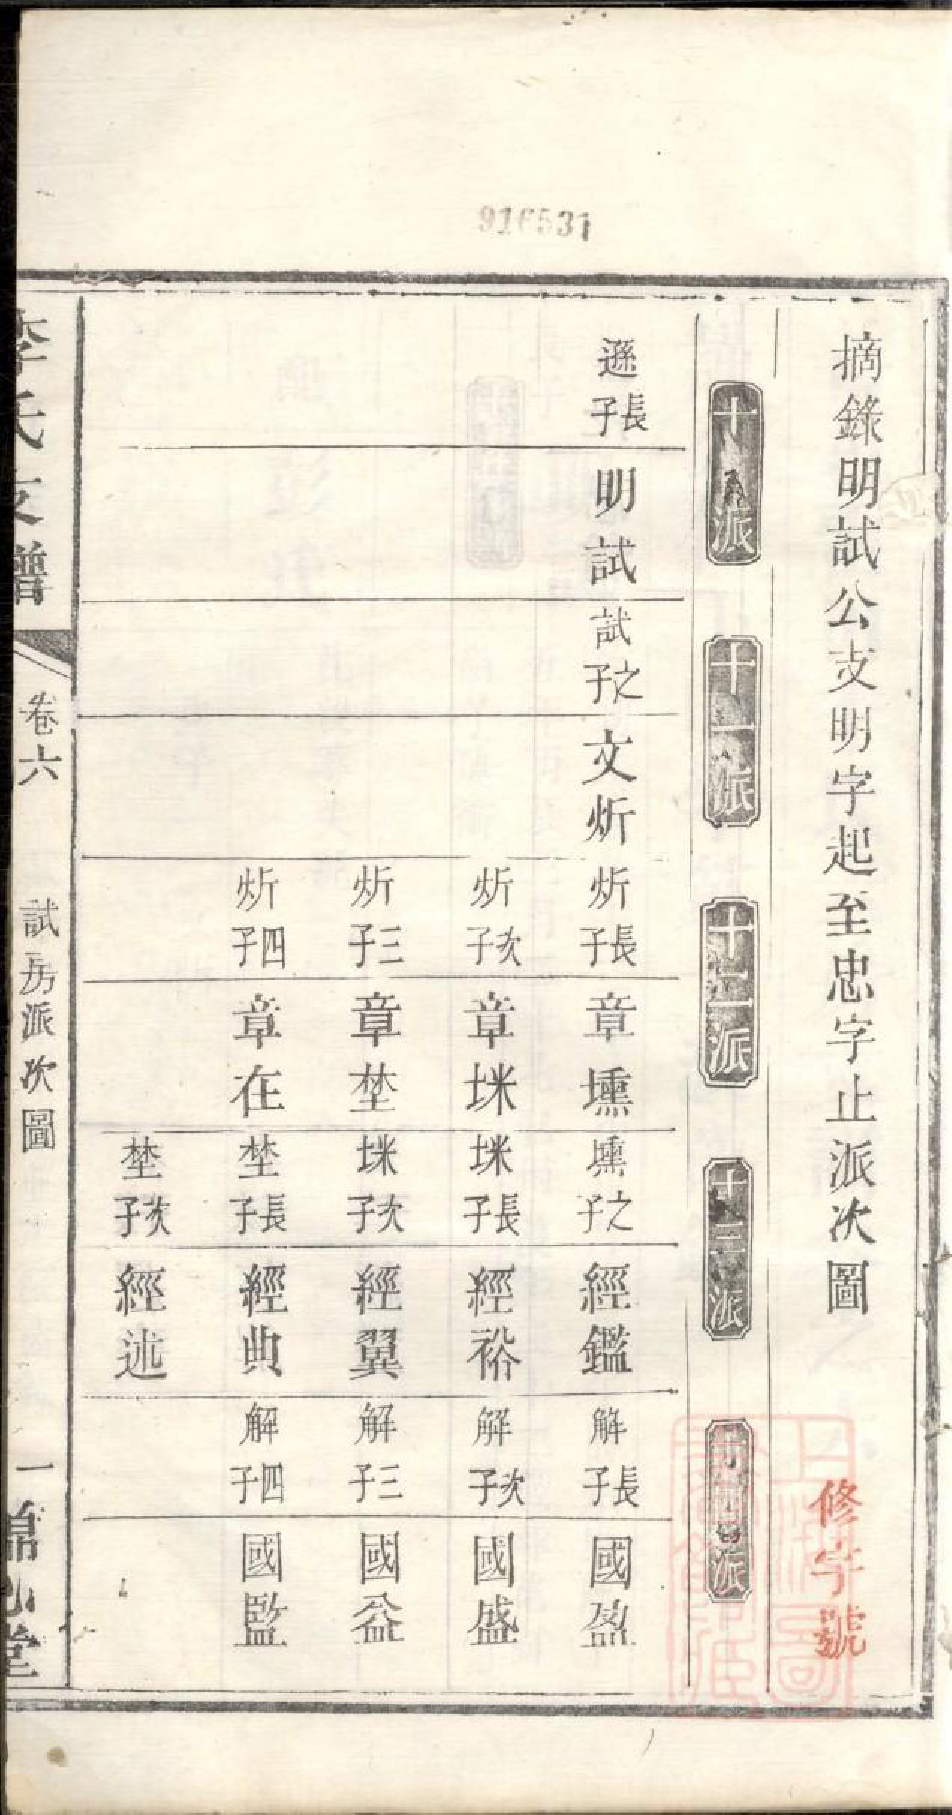 916531
摘錄明試公支明字起至忠字止派次圖
修字號
十派
十一派
十二派
十三派
十四派
遜長子
明試
試之子
文炘
炘長子
章壎
壎之子
經鑑
解長子
國盈
炘次子
章坔
坔長子
經裕
解次子
國盛
炘三子
章埜
次子
經翼
解三子
國益
炘四子
章在
埜長子
經典
解四子
國監
埜次子
經述
李氏支譜
卷六
試房派次圖
一
堂